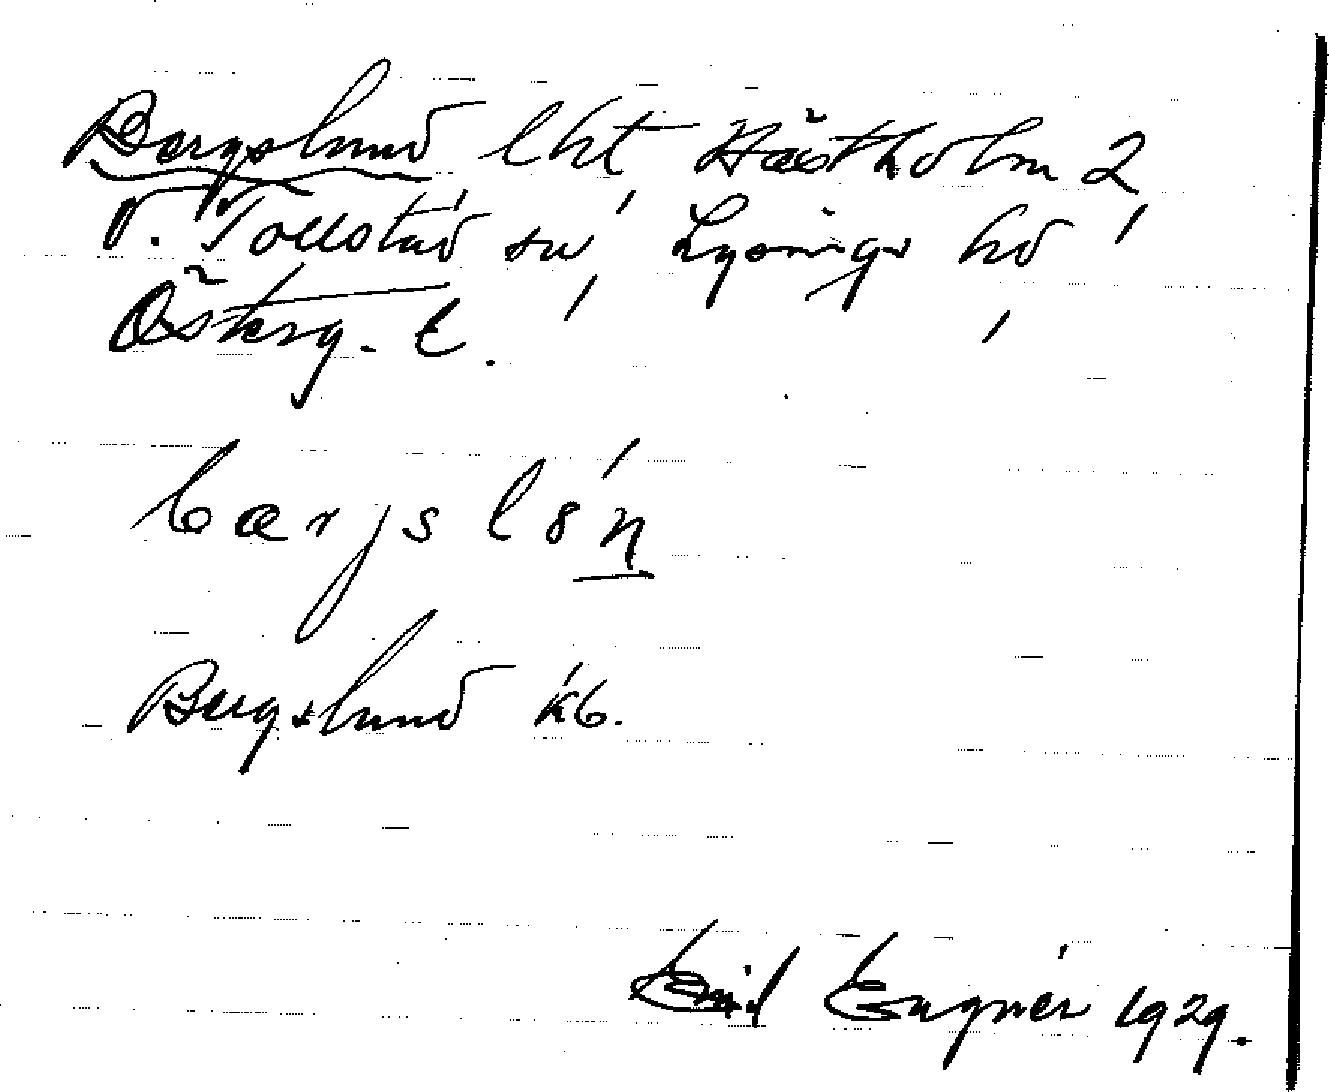 Bergslund lht, Hästholm 2,
V. Tollstad sn, Lysings hd,
Österg. l.
Bergslund kb.
Emil Engnér 1929.